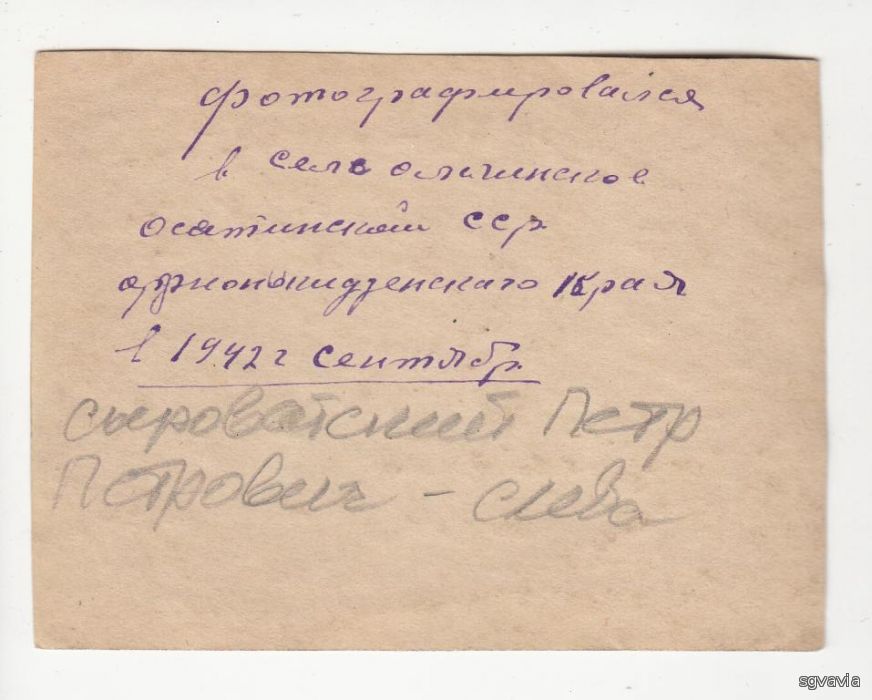 фотографировался
в селе ольгинское
осатинской сср
орджоникидзенскаго края
в 1942 г сентябр
сыроватский Петр
Петрович - слева
sgvavia